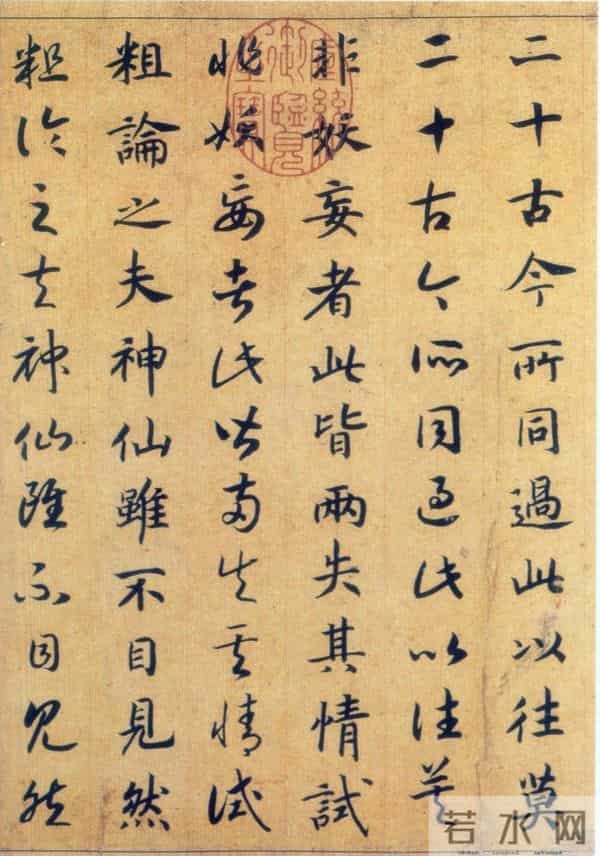 二十古今所同過此以往莫
二十古今所同過此以往莫
非妖妄者此皆兩失其情試
非妖妄者此皆兩失其情試
粗論之夫神仙雖不目見然
粗論之夫神仙雖不目見然
宣統御覽之寶
若水网